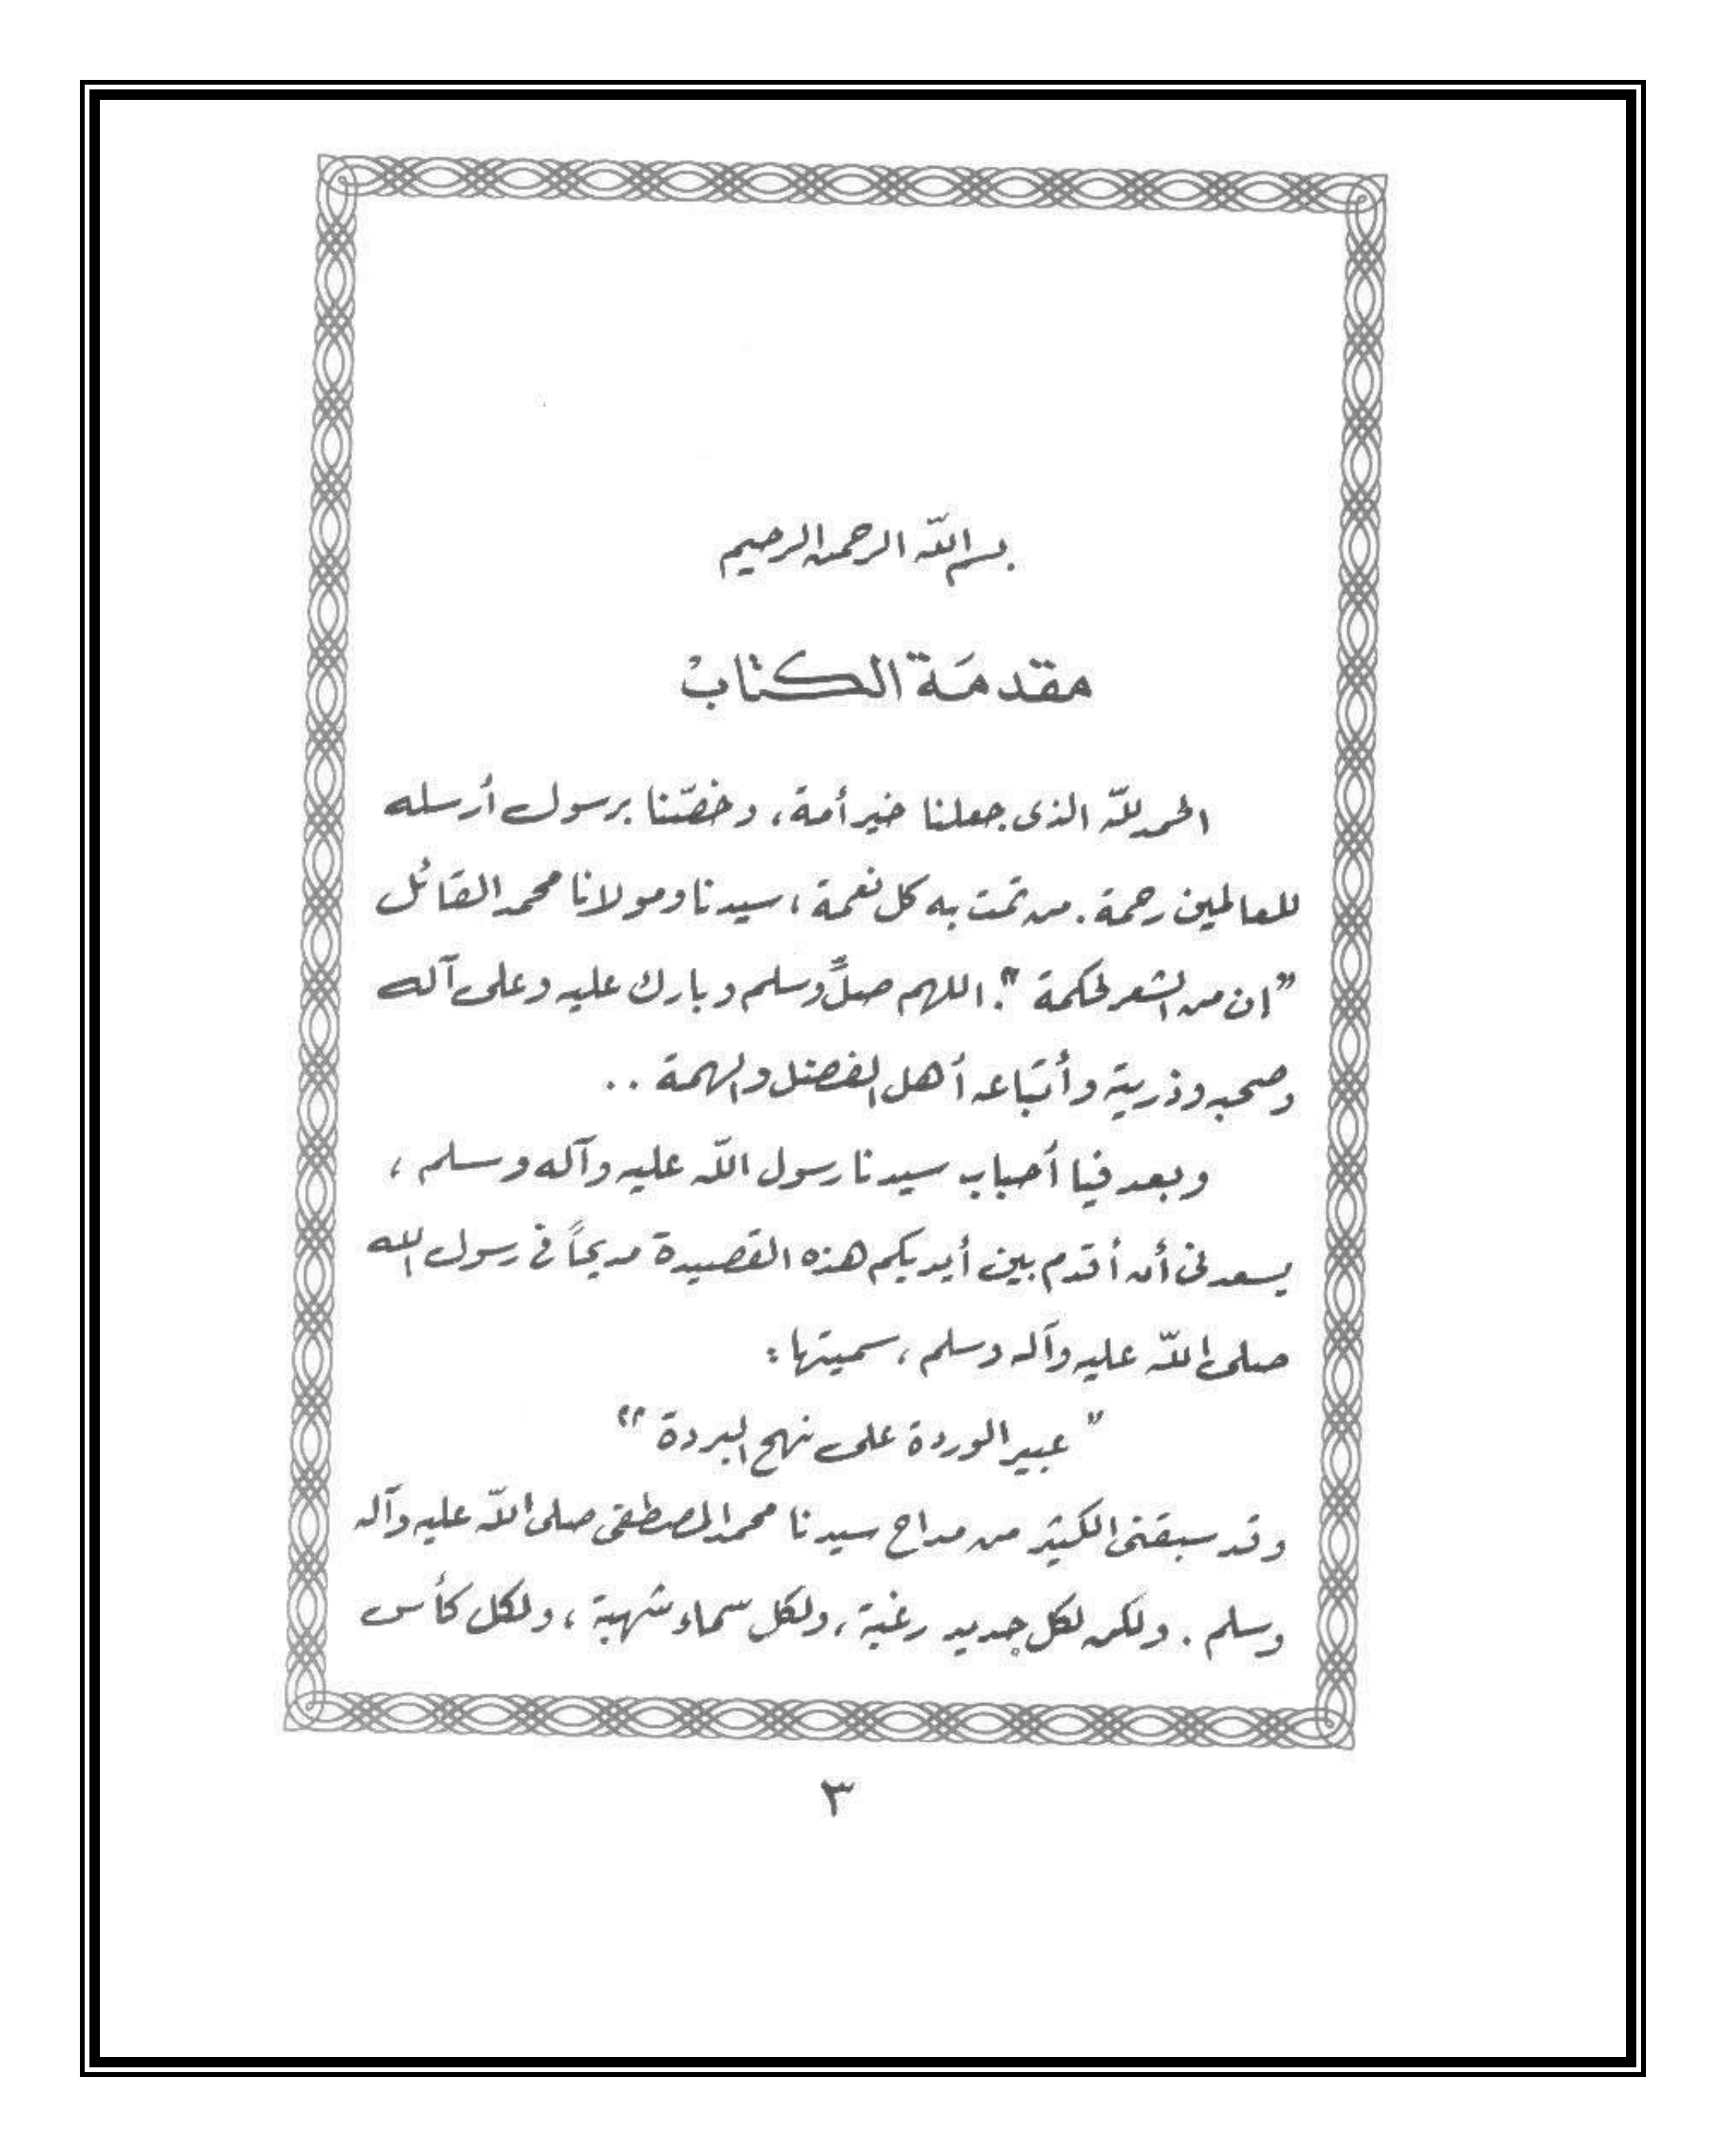 بسم الله الرحمن الرحيم
مقدمَة الكتابْ
الحمد للّه الذى جعلنا خير أمة، وخصّنا برسول أرسله
للعالمين رحمة. من تمت به كل نعمة، سيدنا ومولانا محمد القائل
"ان من الشعر لحكمة". اللهم صلِّ وسلم وبارك عليه وعلى آله
وصحبه وذريته وأتباعه أهل الفضل والهمة ..
وبعد فيا أحباب سيدنا رسول اللّه عليه وآله وسلم ،
يسعدنى أن أقدم بين أيديكم هذه القصيدة مديحاً فى رسول الله
صلى اللّه عليه وآله وسلم ، سميتها :
" عبير الوردة على نهج البردة "
وقد سبقنى الكثير من مداح سيدنا محمد المصطفى صلى اللّه عليه وآله
وسلم . ولكن لكل جديد رغبة ، ولكل سماء شهبة ، ولكل كأس
٣